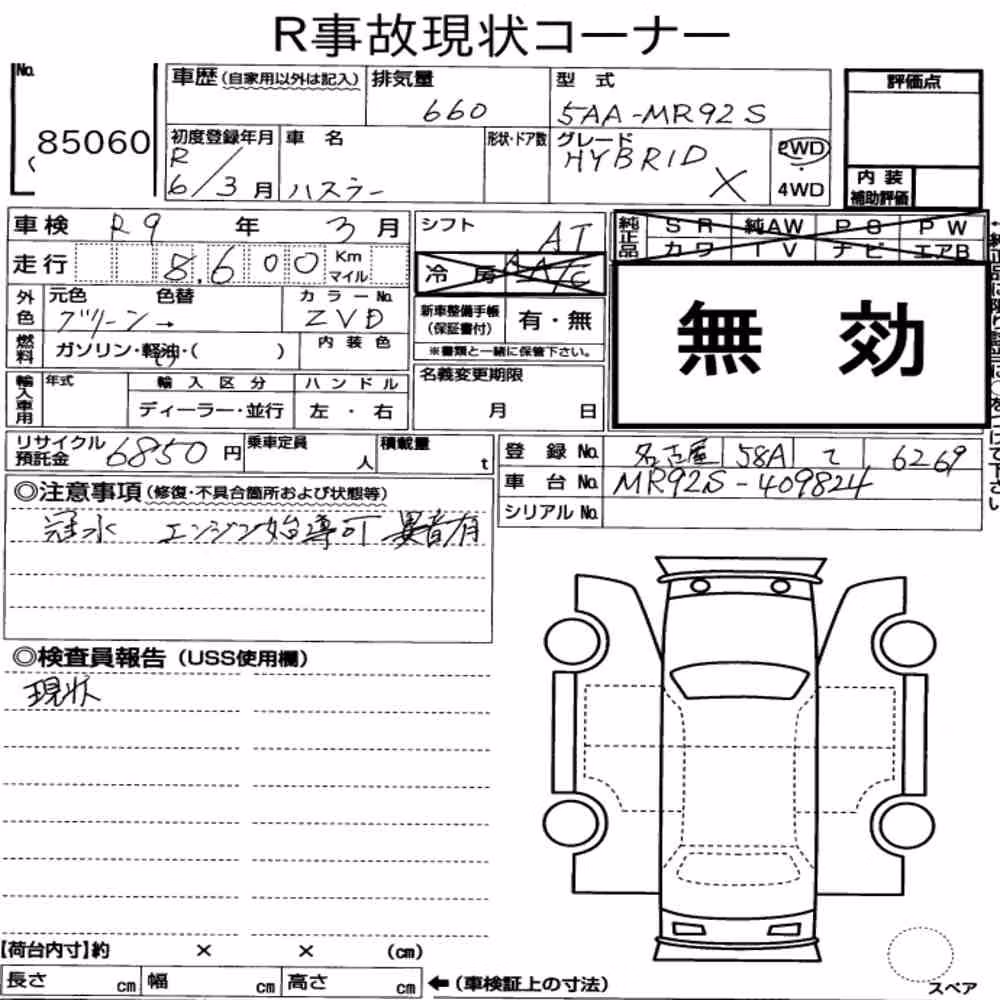 R事故現状コーナー
No.
85060
車歴(自家用以外は記入) 排気量 660 型式 5AA-MR92S
評価点
初度登録年月 R6/3月 車名 ハスラー 形状・ドア数 グレード HYBRID X 2WD 4WD
内装補助評価
車検 R9年3月 シフト AT
純正品 SR 純AW PS PW
カワ TV ナビ エアB
走行 8,600 Km マイル 冷房 AAC A/C
無効
外色 元色 色替 カラーNo.
グリーン→ ZVD
新車整備手帳(保証書付) 有・無
※書類と一緒に保管下さい。
燃料 ガソリン・軽油・( ) 内装色
輸入車用 年式 輸入区分 ハンドル
ディーラー・並行 左・右
名義変更期限
月 日
リサイクル預託金 6850円 乗車定員 人 積載量 t
登録No. 名古屋 58A て 6269
車台No. MR92S-409824
シリアルNo.
◎注意事項(修復・不具合箇所および状態等)
冠水 エンジン始導可 異音有
◎検査員報告(USS使用欄)
現状
【荷台内寸】約 × × (cm)
長さ cm 幅 cm 高さ cm ←(車検証上の寸法)
スペア